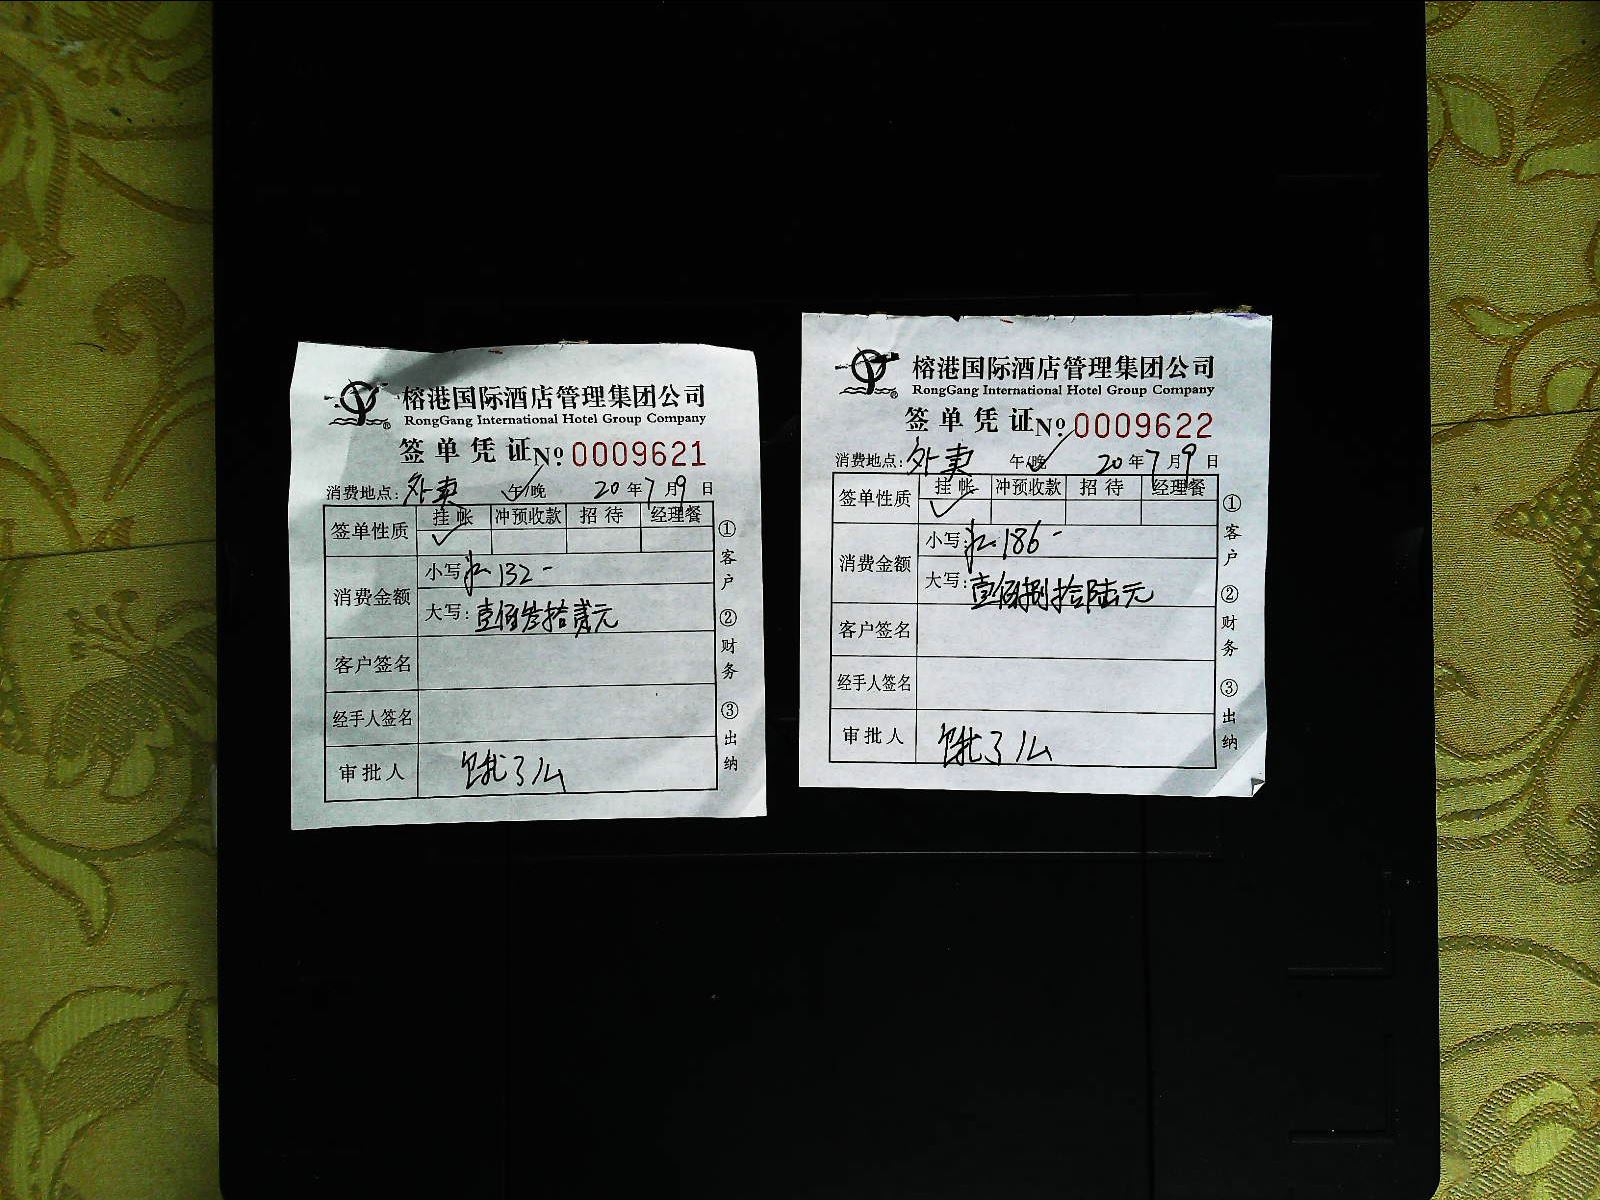 榕港国际酒店管理集团公司
RongGang International Hotel Group Company
签单凭证 № 0009621
消费地点: 外卖 午/晚 20年7月9日
签单性质 挂帐 冲预收款 招待 经理餐
消费金额 小写: 132-
大写: 壹佰叁拾贰元
客户签名
经手人签名
审批人 饿了么
①客户 ②财务 ③出纳
榕港国际酒店管理集团公司
RongGang International Hotel Group Company
签单凭证 № 0009622
消费地点: 外卖 午/晚 20年7月9日
签单性质 挂帐 冲预收款 招待 经理餐
消费金额 小写: 186-
大写: 壹佰捌拾陆元
客户签名
经手人签名
审批人 饿了么
①客户 ②财务 ③出纳